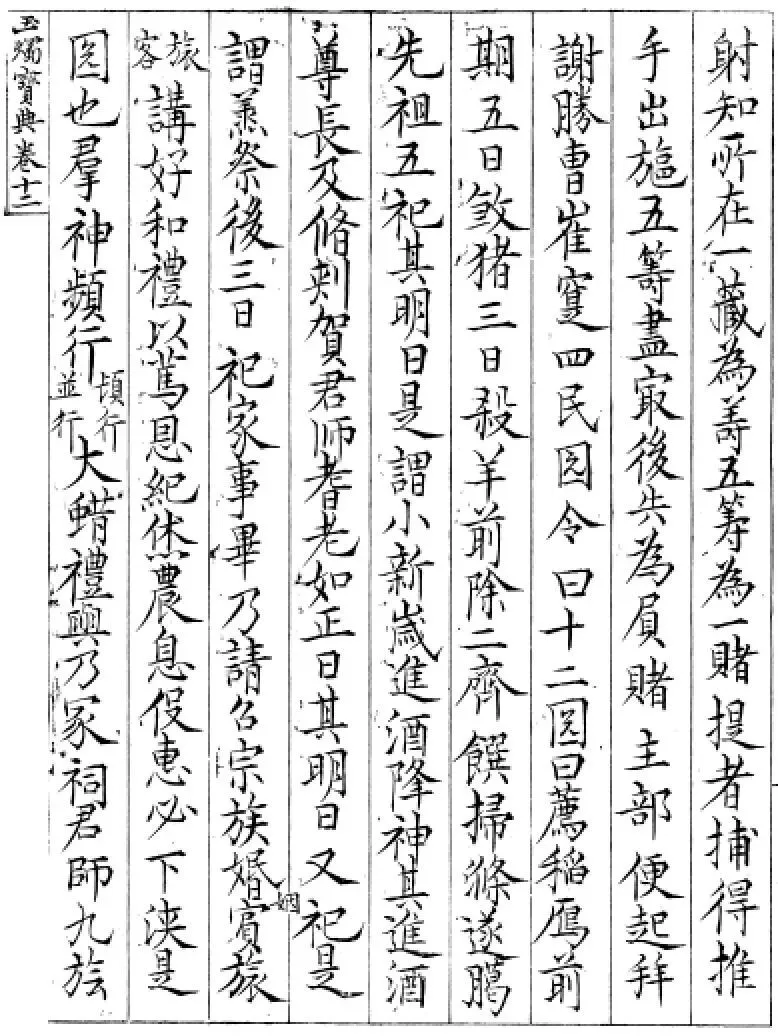 射知所在一藏為壽五筹為一賭提者捕得推
手出旀五籌盡冣後失為屓賭主部便起拜
謝勝曹崔寔四民囝令曰十二囝日薦稻鴈前
期五日煞猪三日殺羊前除二齊饌掃滌遂臈
先祖五祀其明日是謂小新歲進酒降神其進酒
尊長及脩刾賀君師耆老如正日其明日又祀是
謂蒸祭後三日祀家事畢乃請召宗族婚姻賓旅
旅客講好和禮以篤恩紀休農息役惠必下浹是
囝也羣神頻行頻行並行大蜡禮興乃冢祠君師九族
玉燭寶典卷十二